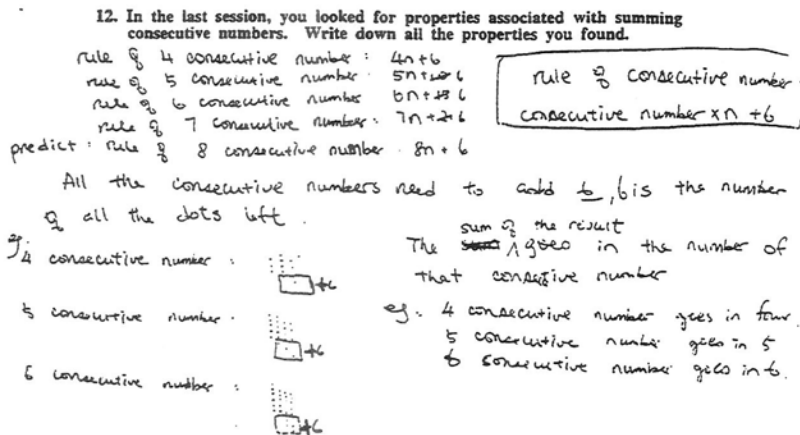 12. In the last session, you looked for properties associated with summing
consecutive numbers. Write down all the properties you found.
rule of 4 consecutive number : 4n+6
rule of 5 consecutive number 5n+ 6
rule of 6 consecutive number 6n+ 6
rule of 7 consecutive number : 7n+ 6
predict : rule of 8 consecutive number . 8n + 6
rule of consecutive number
consecutive number x n + 6
All the consecutive numbers need to add 6, 6 is the number
of all the dots left .
eg.
4 consecutive number : +6
5 consecutive number . +6
6 consecutive number : +6
sum of the result
The goes in the number of
that consecutive number
eg. 4 consecutive number goes in four.
5 consecutive number goes in 5
6 consecutive number goes in 6.